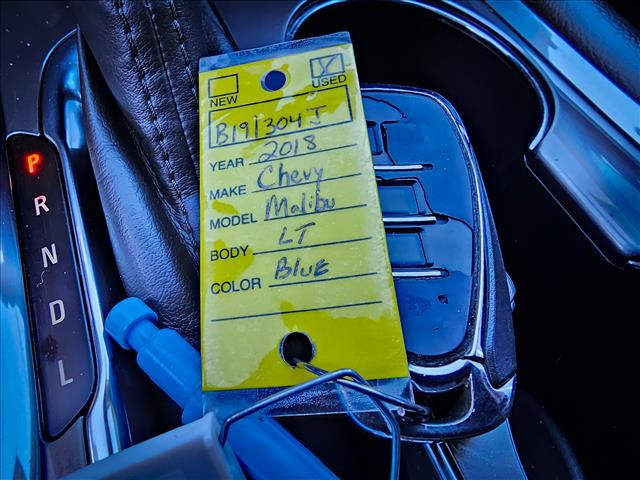 NEW USED
B191304J
YEAR 2018
MAKE Chevy
MODEL Malibu
BODY LT
COLOR Blue
P
R
N
D
L